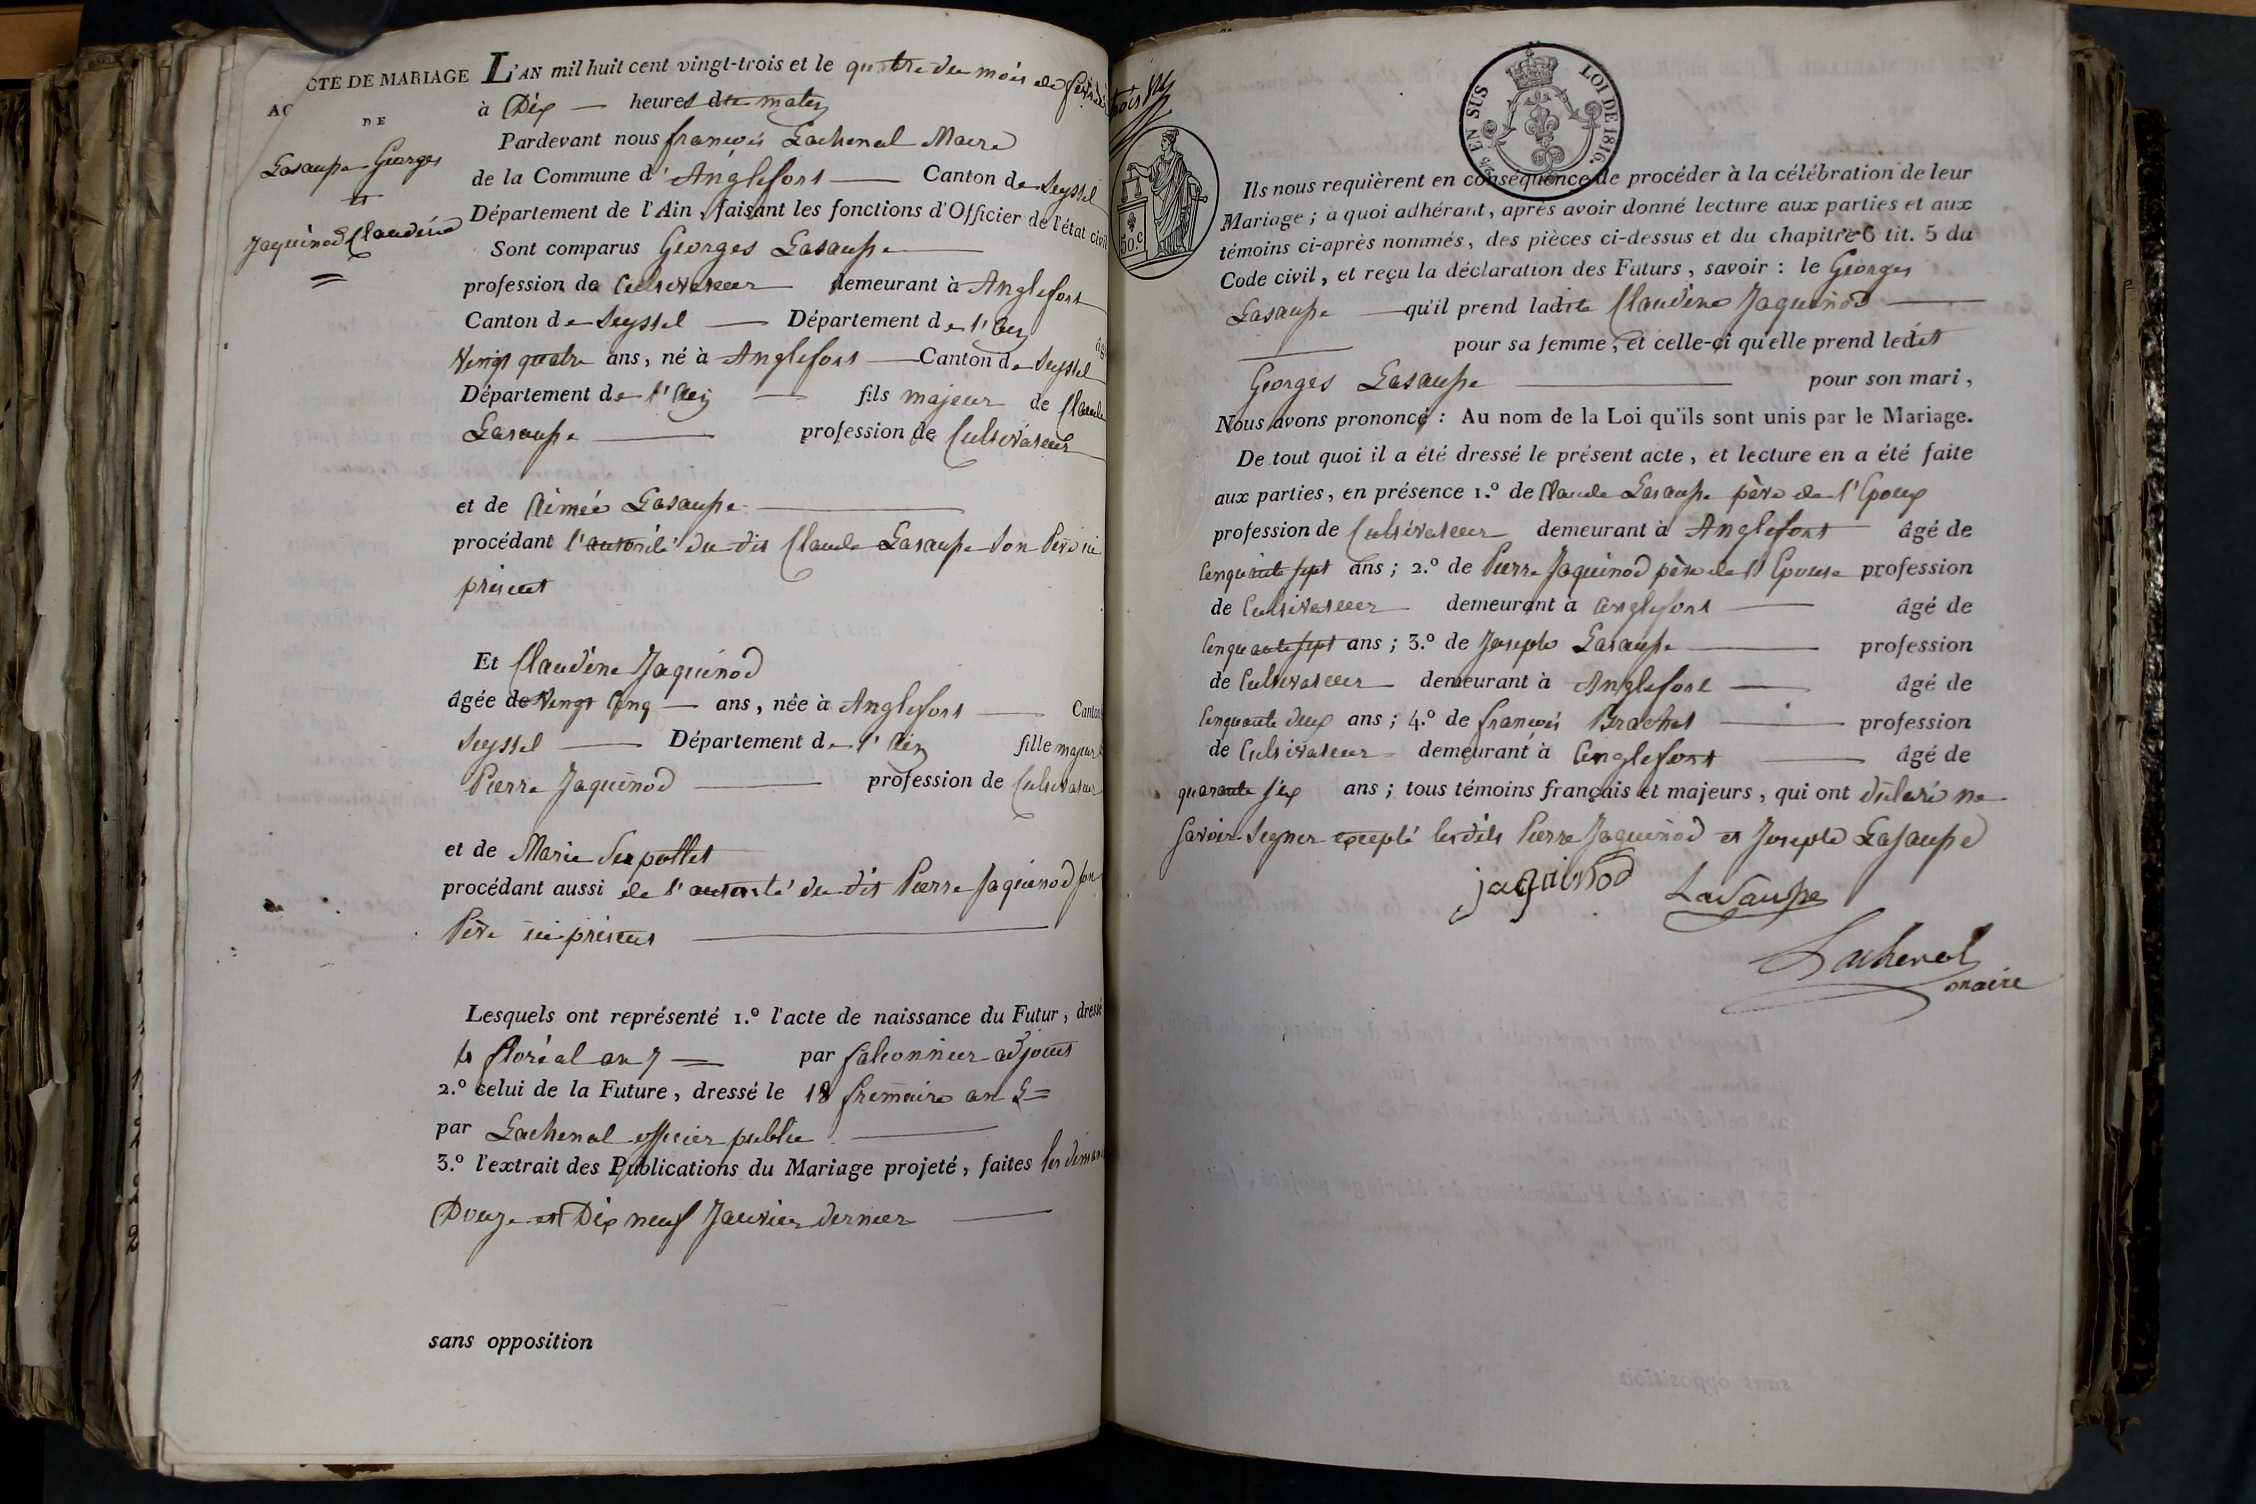 ACTE DE MARIAGE
DE
Lasaupe Georges
et
Jaquinod Claudine
L'AN mil huit cent vingt-trois et le quatre du mois de février
à Dix heures du matin
Pardevant nous françois Lachenal Maire
de la Commune d'Anglefort Canton de Seyssel
Département de l'Ain, faisant les fonctions d'Officier de l'état civil
Sont comparus Georges Lasaupe
profession de Cultivateur demeurant à Anglefort
Canton de Seyssel Département de l'Ain âgé
Vingt quatre ans, né à Anglefort Canton de Seyssel
Département de l'Ain fils majeur de Claude
Lasaupe profession de Cultivateur
et de Aimée Lasaupe
procédant l'autorité du dit Claude Lasaupe son Père ici
présent
Et Claudine Jaquinod
âgée de Vingt Cinq ans, née à Anglefort Canton
Seyssel Département de l'Ain fille majeure
Pierre Jaquinod profession de Cultivateur
et de Marie Serpollet
procédant aussi de l'autorité du dit Pierre Jaquinod son
Père ici présent
Lesquels ont représenté 1.º l'acte de naissance du Futur, dressé
floréal an 7 par falconnier adjoint
2.º celui de la Future, dressé le 18 frimaire an
par Lachenal officier public
3.º l'extrait des Publications du Mariage projeté, faites les diman
Douze et Dix neuf Janvier dernier
sans opposition
trois
50.c
EN SUS LOI DE 1816.
Ils nous requièrent en conséquence de procéder à la célébration de leur
Mariage ; à quoi adhérant, après avoir donné lecture aux parties et aux
témoins ci-après nommés, des pièces ci-dessus et du chapitre 6 tit. 5 du
Code civil, et reçu la déclaration des Futurs, savoir : le Georges
Lasaupe qu'il prend ladite Claudine Jaquinod
pour sa femme, et celle-ci qu'elle prend ledit
Georges Lasaupe pour son mari,
Nous avons prononcé : Au nom de la Loi qu'ils sont unis par le Mariage.
De tout quoi il a été dressé le présent acte, et lecture en a été faite
aux parties, en présence 1.º de Claude Lasaupe père de l'Epoux
profession de Cultivateur demeurant à Anglefort âgé de
Cinquante sept ans ; 2.º de Pierre Jaquinod père de l'Epouse profession
de Cultivateur demeurant à anglefort âgé de
Cinquante sept ans ; 3.º de Joseph Lasaupe profession
de Cultivateur demeurant à Anglefort âgé de
Cinquante deux ans ; 4.º de françois Brachet profession
de Cultivateur demeurant à anglefort âgé de
quarante six ans ; tous témoins français et majeurs, qui ont déclaré ne
savoir signer excepté lesdits Pierre Jaquinod et Joseph Lasaupe
jaquinod Lasaupe
Lachenal
maire